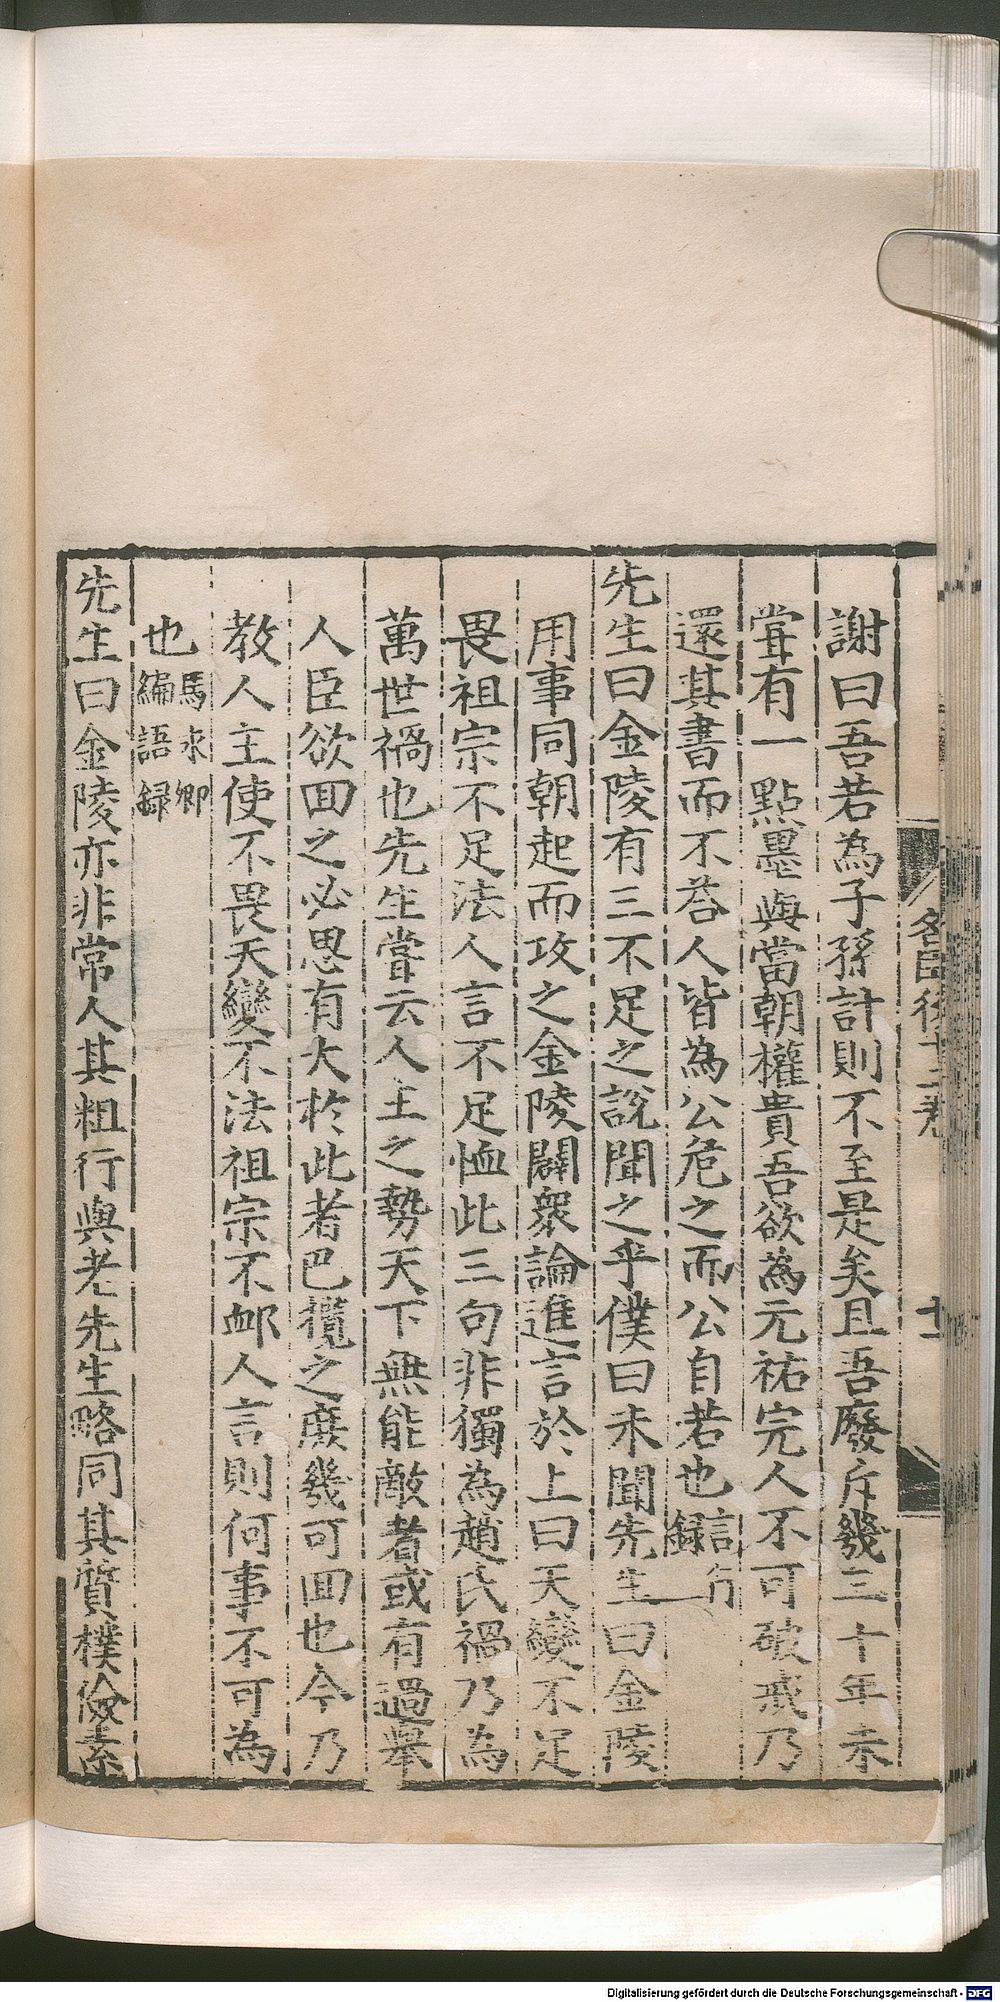 謝曰吾若為子孫計則不至是矣且吾廢斥幾三十年未
甞有一點墨與當朝權貴吾欲為元祐完人不可破戒乃
還其書而不荅人皆為公危之而公自若也言行録
先生曰金陵有三不足之說聞之乎僕曰未聞先生曰金陵
用事同朝起而攻之金陵闢衆論進言於上曰天變不足
畏祖宗不足法人言不足恤此三句非獨為趙氏禍乃為
萬世禍也先生甞云人主之勢天下無能敵者或有過舉
人臣欲囬之必思有大於此者巴攬之庶幾可囬也今乃
教人主使不畏天變不法祖宗不䘏人言則何事不可為
也馬永卿編語録
先生曰金陵亦非常人其粗行與老先生略同其質樸儉素
名臣後十二卷
十一
Digitalisierung gefördert durch die Deutsche Forschungsgemeinschaft - DFG